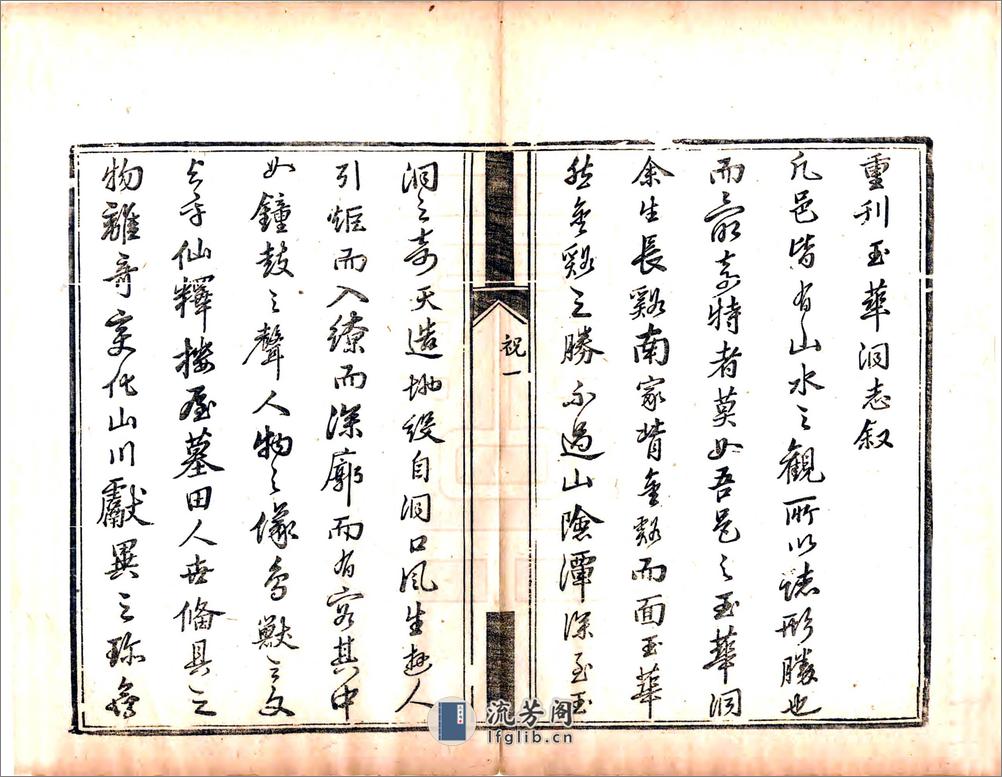 重刋玉華洞志叙
凡邑皆有山水之觀所以誌形勝也
而最奇特者莫如吾邑之玉華洞
余生長谿南家背金谿而面玉華
然金谿之勝不過山險潭深至玉
祝一
洞之奇天造地設自洞口風生趂人
引炬而入繚而深廓而有容其中
如鐘鼓之聲人物之像鳥獸之文
與乎仙釋樓屋墓田人世備具之
物離奇变化山川獻異之珎
流芳阁
lfglib.cn